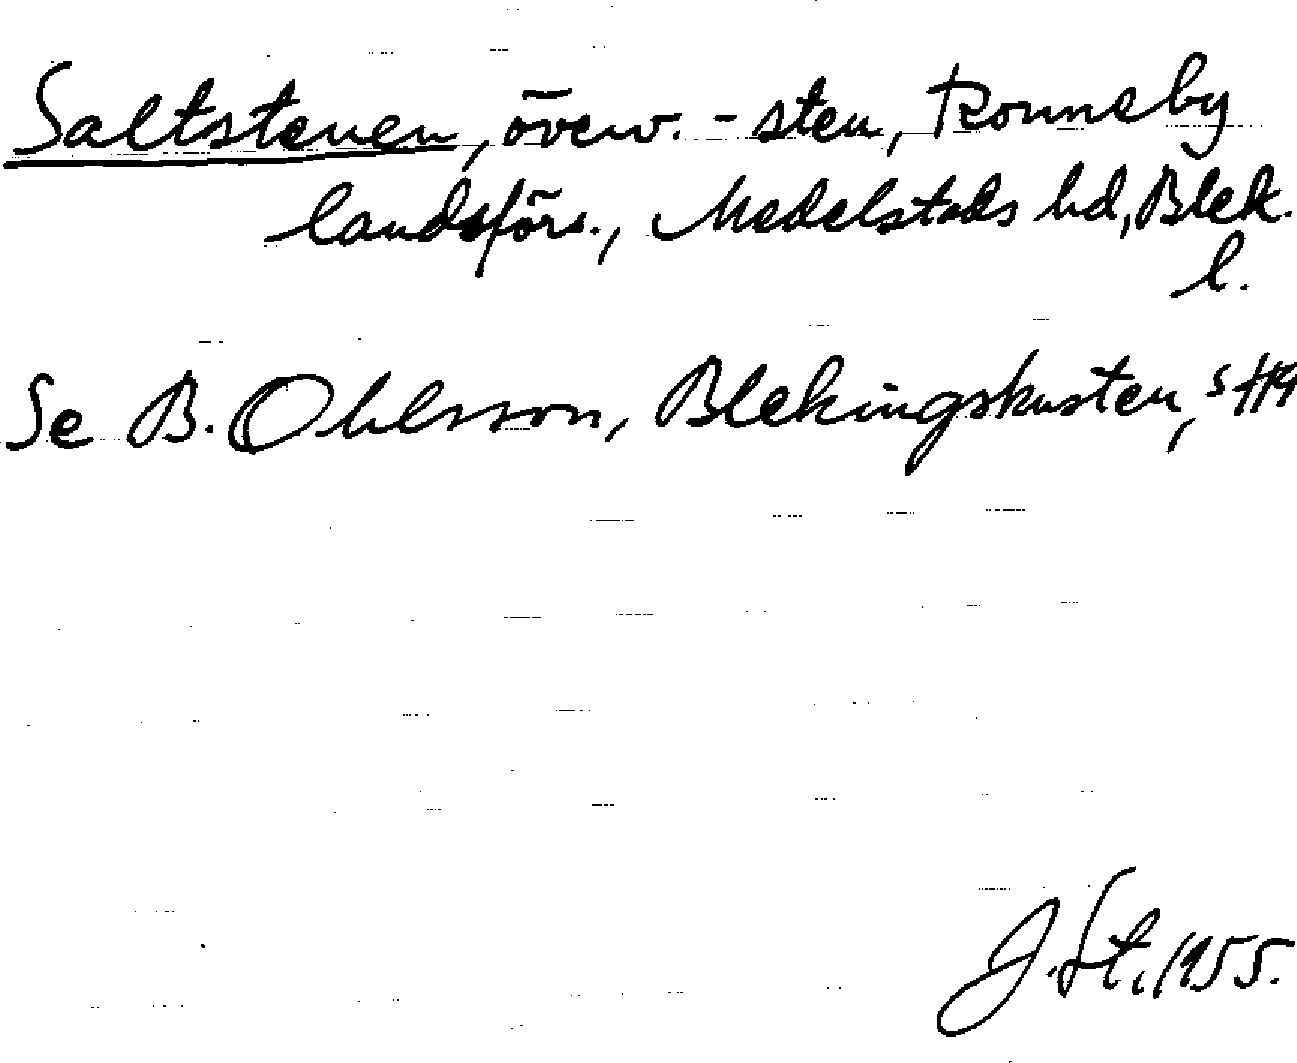 Saltstenen, överv. - sten, Ronneby
landsförs., Medelstads hd, Blek.
l.
Se B. Ohlsson, Blekingskusten, s
J. St. 1955.